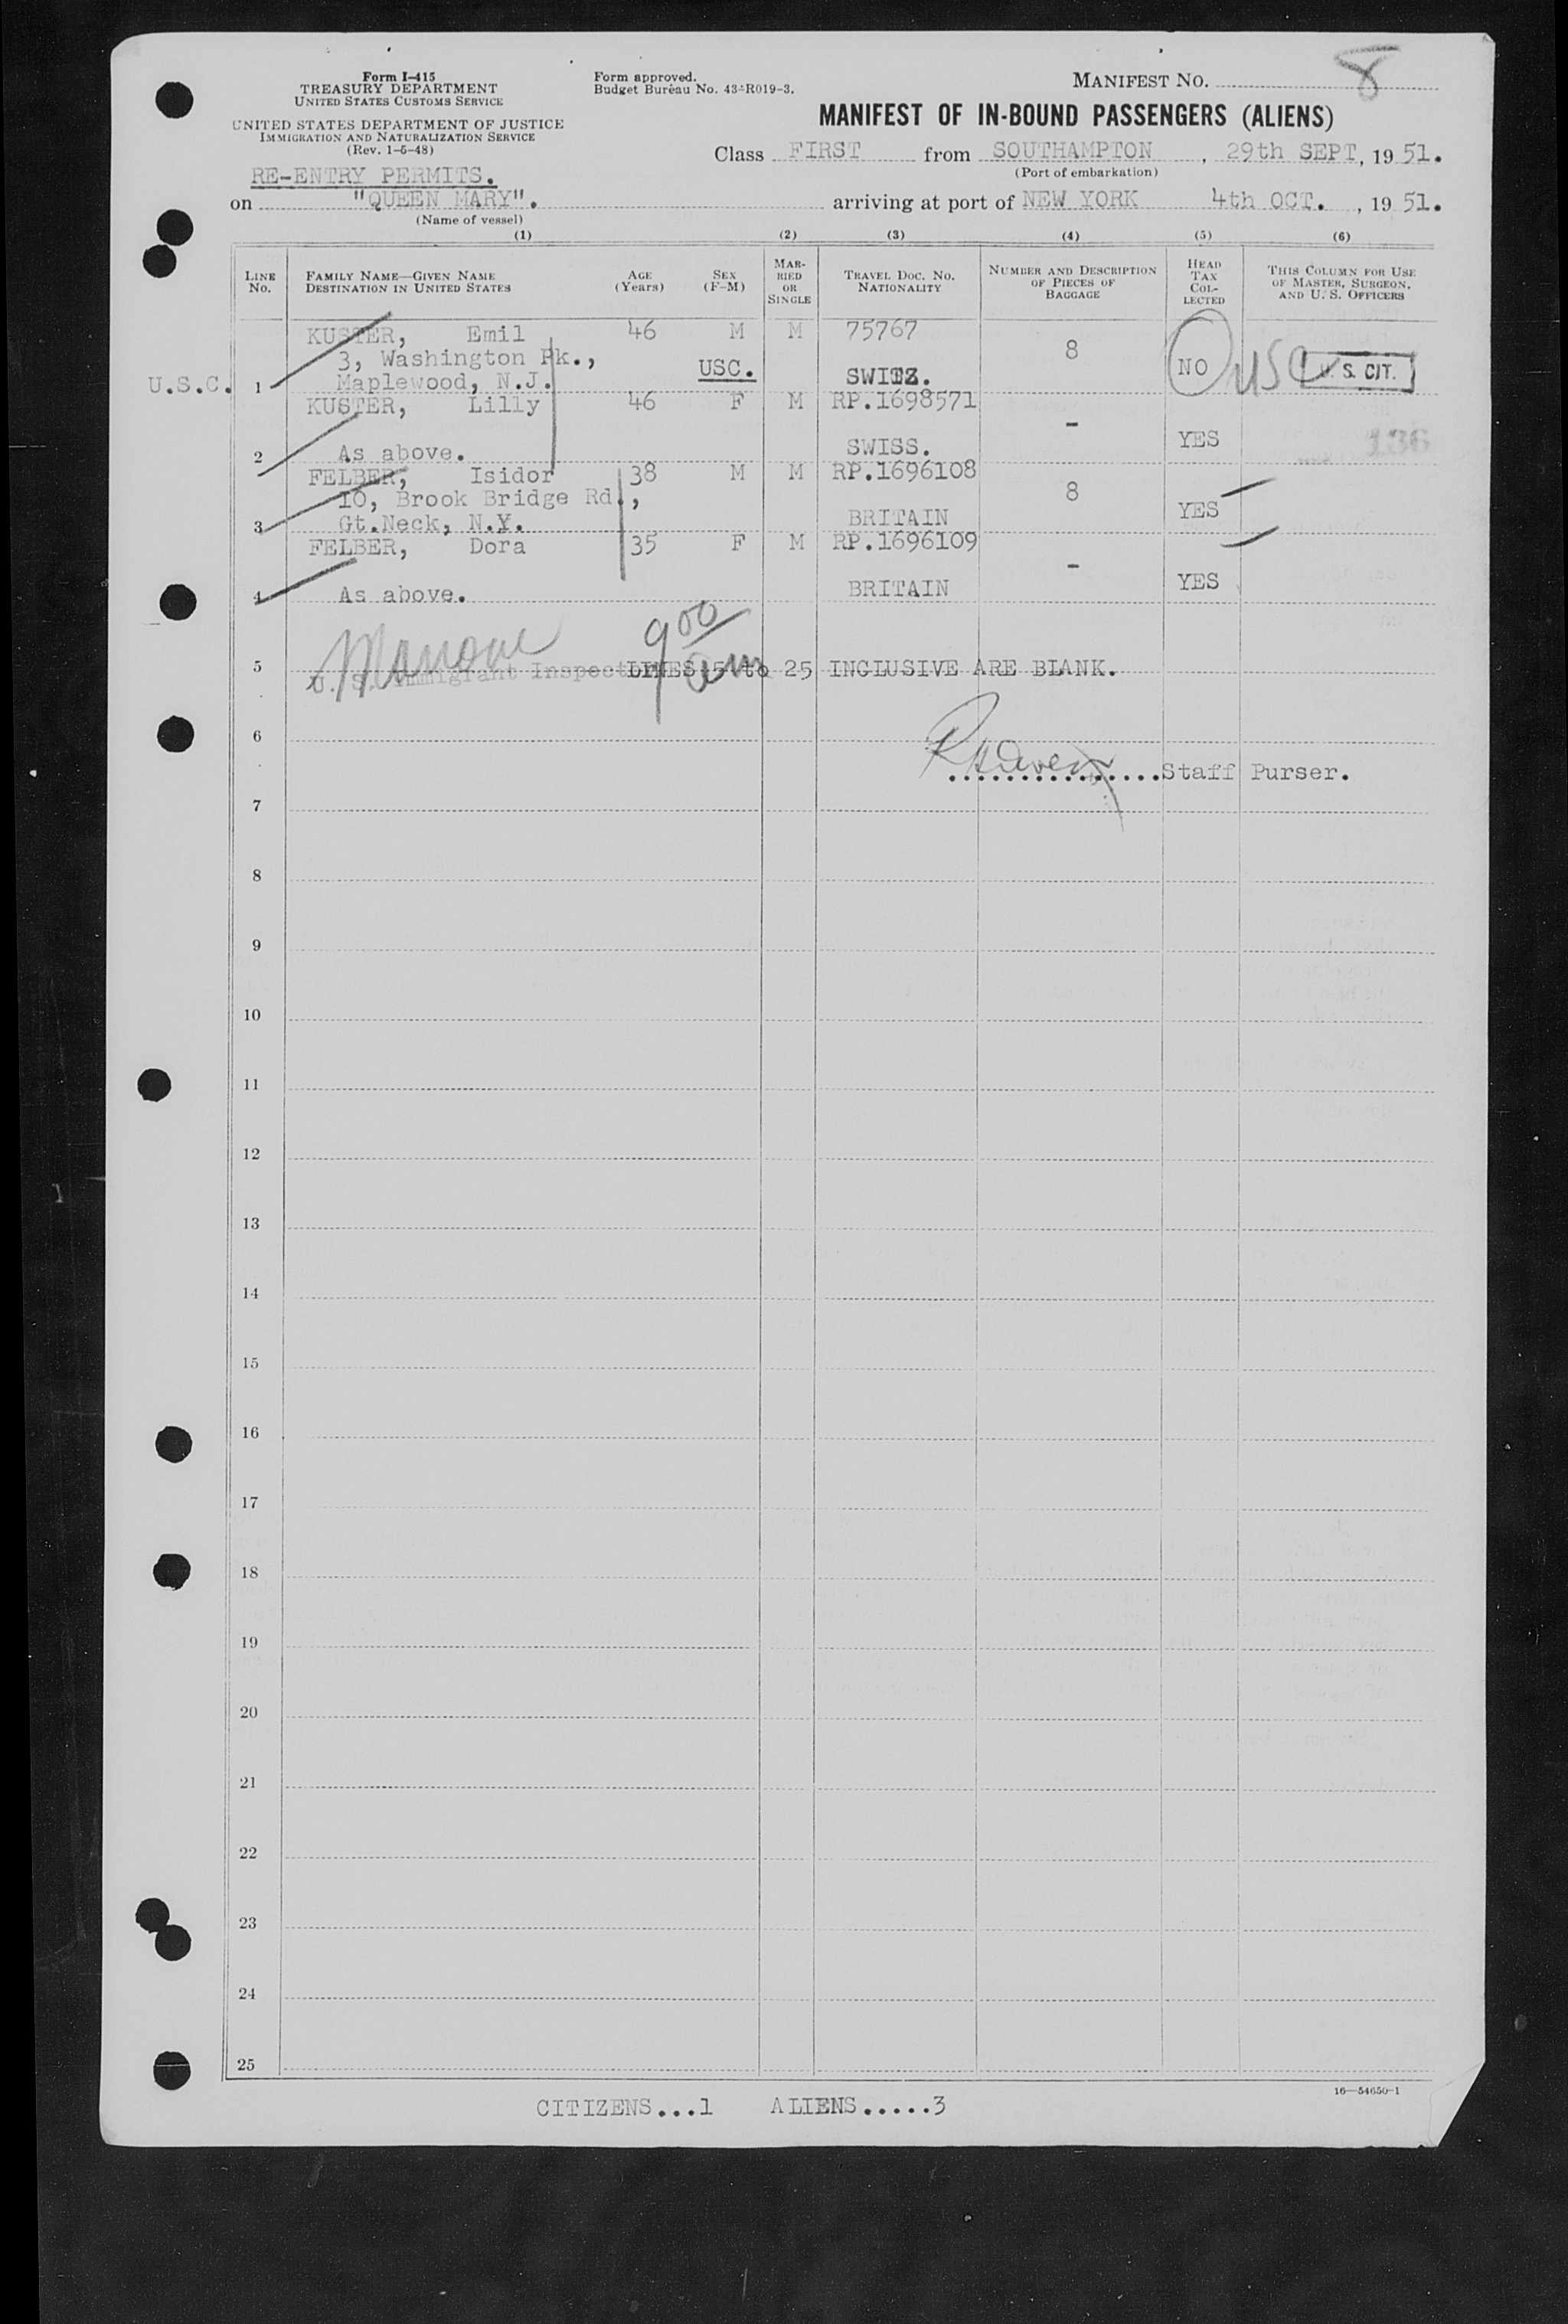 Form I-415
TREASURY DEPARTMENT
UNITED STATES CUSTOMS SERVICE
UNITED STATES DEPARTMENT OF JUSTICE
IMMIGRATION AND NATURALIZATION SERVICE
(Rev. 1-5-48)
Form approved.
Budget Bureau No. 43-R019-3.
MANIFEST NO. 8
MANIFEST OF IN-BOUND PASSENGERS (ALIENS)
Class FIRST from SOUTHAMPTON, 29th SEPT, 19 51.
(Port of embarkation)
RE-ENTRY PERMITS.
on "QUEEN MARY". arriving at port of NEW YORK 4th OCT., 19 51.
(Name of vessel)
(1) (2) (3) (4) (5) (6)
LINE No. FAMILY NAME—GIVEN NAME DESTINATION IN UNITED STATES AGE (Years) SEX (F-M) MARRIED OR SINGLE TRAVEL DOC. NO. NATIONALITY NUMBER AND DESCRIPTION OF PIECES OF BAGGAGE HEAD TAX COLLECTED THIS COLUMN FOR USE OF MASTER, SURGEON, AND U. S. OFFICERS
KUSTER, Emil 46 M M 75767
3, Washington Pk., 8
U.S.C. 1 Maplewood, N.J. USC. NO USC U. S. CIT.
KUSTER, Lilly 46 F M RP.1698571
2 As above. SWISS. - YES 136
FELBER, Isidor 38 M M RP.1696108
10, Brook Bridge Rd., 8
3 Gt.Neck, N.Y. BRITAIN YES
FELBER, Dora 35 F M RP.1696109
4 As above. BRITAIN - YES
9 00 am
5 U. S. Immigrant Inspector LINES 5 to 25 INCLUSIVE ARE BLANK.
6
Staff Purser.
7
8
9
10
11
12
13
14
15
16
17
18
19
20
21
22
23
24
25
16—54650-1
CITIZENS...1 ALIENS.....3